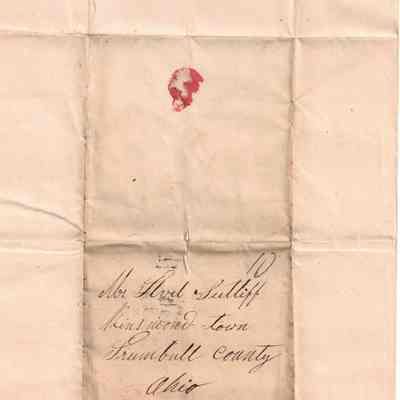 10
Mr Flavel Sutliff
Kinsmond town
Trumbull County
Ohio